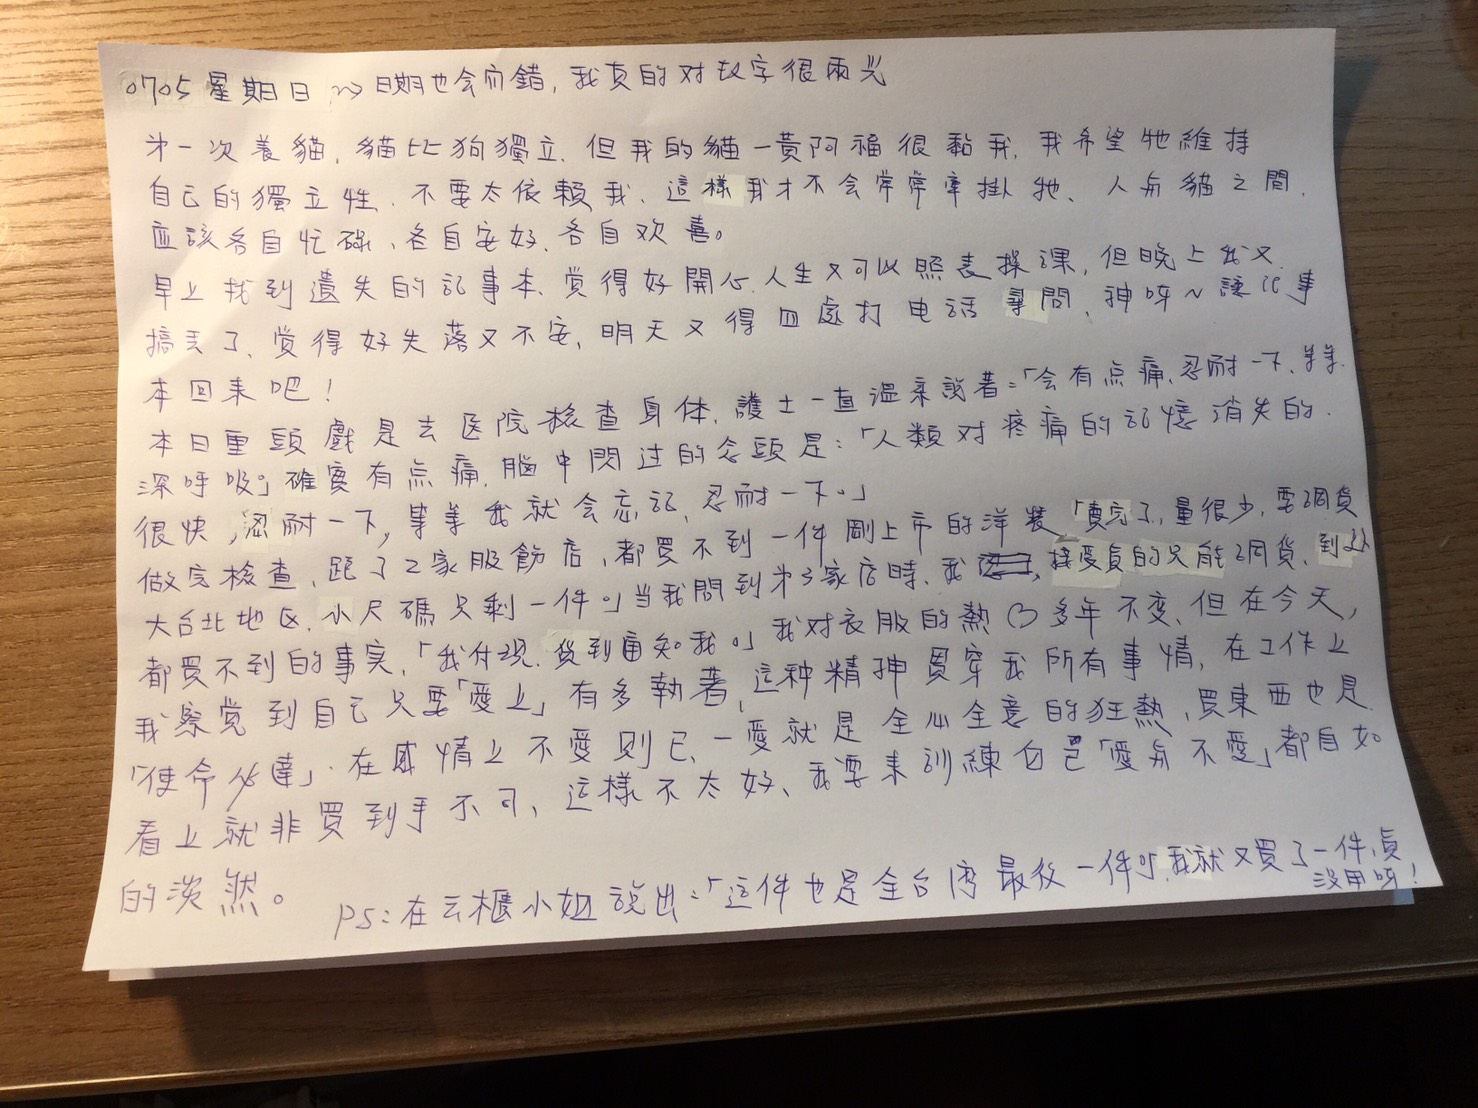 0705 星期日 ~> 日期也会弄錯, 我真的对数字很兩光
第一次養貓, 貓比狗獨立、但我的貓—黃阿福很黏我, 我希望牠維持
自己的獨立性、不要太依賴我、這樣我才不会常常牽掛牠、人与貓之間、
应該各自忙碌、各自安好、各自欢喜。
早上找到遺失的記事本、覚得好開心、人生又可以照表操課, 但晚上我又
搞丟了、覚得好失落又不安、明天又得四處打电话尋問、神呀~讓記事
本回来吧!
本日重頭戲是去医院檢查身体, 護士一直温柔說著:「会有点痛、忍耐一下、等等、
深呼吸。」確實有点痛, 腦中閃过的念頭是:「人類对疼痛的記憶消失的
很快, 忍耐一下, 等等我就会忘記, 忍耐一下。」
做完檢查, 跑了2家服飾店, 都買不到一件剛上市的洋裝「賣完了, 量很少, 要調貨
大台北地区、小尺碼只剩一件。」当我問到第3家店時、我接受真的只能調貨、到処
都買不到的事実,「我付現、貨到通知我。」我对衣服的熱心多年不变、但在今天,
我察覚到自己只要「愛上」有多執著, 这种精神貫穿我所有事情, 在工作上
「使命必達」、在感情上不愛则已、一愛就是全心全意的狂熱, 買東西也是
看上就非買到手不可、這樣不太好、我要来訓練自己「愛与不愛」都自如
的淡然。
PS: 在云櫃小姐說出:「這件也是全台湾最後一件」, 我就又買了一件, 真
沒用呀!